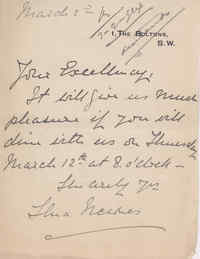 March 2nd
1, The Boltons,
S.W.
Your Excellency,
It will give us much
pleasure if you will
dine with us on Thursday
March 12th at 8 o'clock—
Sincerely yrs